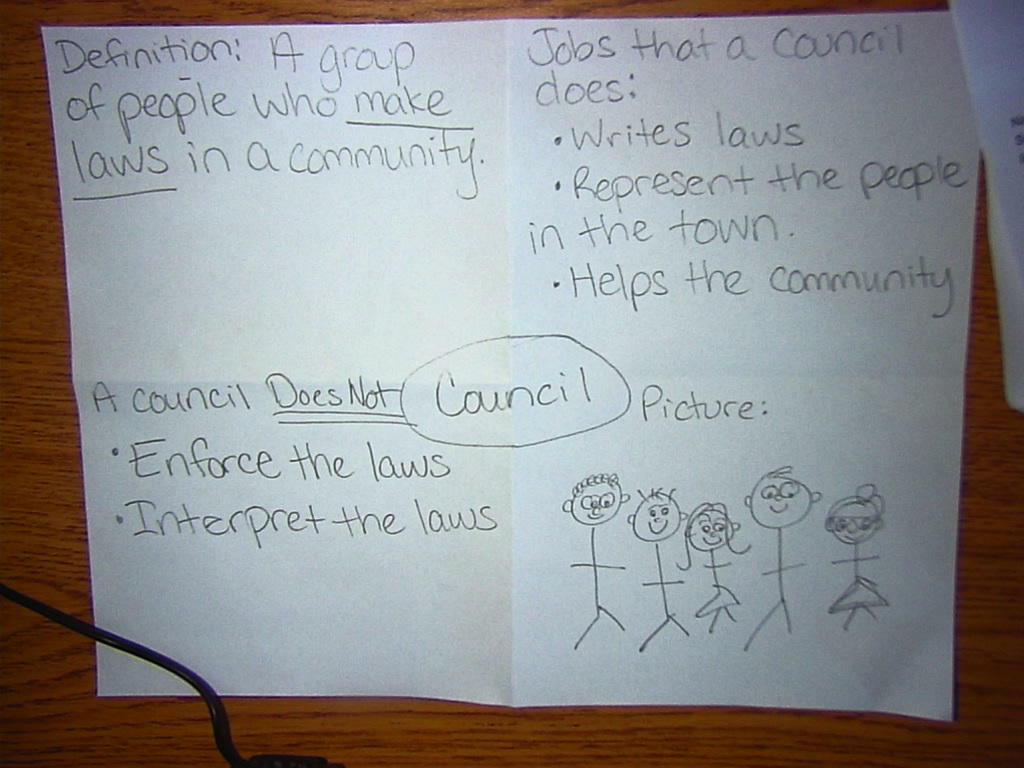 Definition: A group
of people who make
laws in a community.
Jobs that a council
does:
• Writes laws
• Represent the people
in the town.
• Helps the community
A council Does Not
• Enforce the laws
• Interpret the laws
Council
Picture: